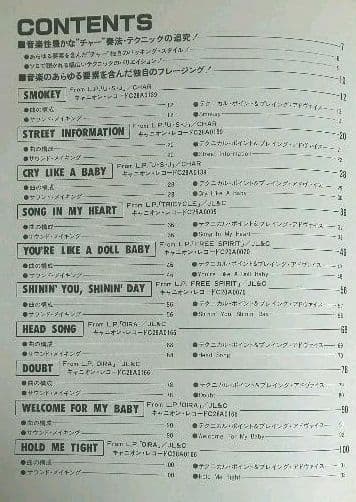 CONTENTS
■音楽性豊かな"チャー"奏法・テクニックの追究! 7
●あらゆる要素を含んだ"チャー"独自のバッキング・スタイル!
●ソロで聴かれる幅広いテクニックのバリエイション!
■音楽のあらゆる要素を含んだ独自のフレージング!
SMOKEY From L.P.「U・S・J」/CHAR キャニオン・レコード 12
●曲の構成 12 ●テクニカル・ポイント&プレイング・アドヴァイス
●サウンド・メイキング 12 ●Smokey
STREET INFORMATION From L.P.「U・S・J」/CHAR キャニオン・レコード 20
●曲の構成 20 ●テクニカル・ポイント&プレイング・アドヴァイス
●サウンド・メイキング 20 ●Street Information
CRY LIKE A BABY From L.P.「U・S・J」/CHAR キャニオン・レコード 28
●曲の構成 28 ●テクニカル・ポイント&プレイング・アドヴァイス
●サウンド・メイキング 28 ●Cry Like a Baby
SONG IN MY HEART From L.P.「TRICYCLE」/JL&C キャニオン・レコード 36
●曲の構成 36 ●テクニカル・ポイント&プレイング・アドヴァイス
●サウンド・メイキング 36 ●Song In My Heart
YOU'RE LIKE A DOLL BABY From L.P.「FREE SPIRIT」/JL&C キャニオン・レコード
●曲の構成 ●テクニカル・ポイント&プレイング・アドヴァイス
●サウンド・メイキング ●You're Like a Doll Baby
SHININ' YOU, SHININ' DAY From L.P.「FREE SPIRIT」/JL&C キャニオン・レコード 56
●曲の構成 56 ●テクニカル・ポイント&プレイング・アドヴァイス
●サウンド・メイキング 56 ●Shinin' You Shinin' Day
HEAD SONG From L.P.「OIRA」/JL&C キャニオン・レコードC28A0166 68
●曲の構成 68 ●テクニカル・ポイント&プレイング・アドヴァイス
●サウンド・メイキング 68 ●Head Song
DOUBT From L.P.「OIRA」/JL&C キャニオン・レコードC28A0166 78
●曲の構成 78 ●テクニカル・ポイント&プレイング・アドヴァイス
●サウンド・メイキング 78 ●Doubt
WELCOME FOR MY BABY From L.P.「OIRA」/JL&C キャニオン・レコードC28A0166 90
●曲の構成 90 ●テクニカル・ポイント&プレイング・アドヴァイス
●サウンド・メイキング 90 ●Welcome For My Baby
HOLD ME TIGHT From L.P.「OIRA」/JL&C キャニオン・レコードC28A0166 100
●曲の構成 100 ●テクニカル・ポイント&プレイング・アドヴァイス
●サウンド・メイキング 100 ●Hold Me Tight